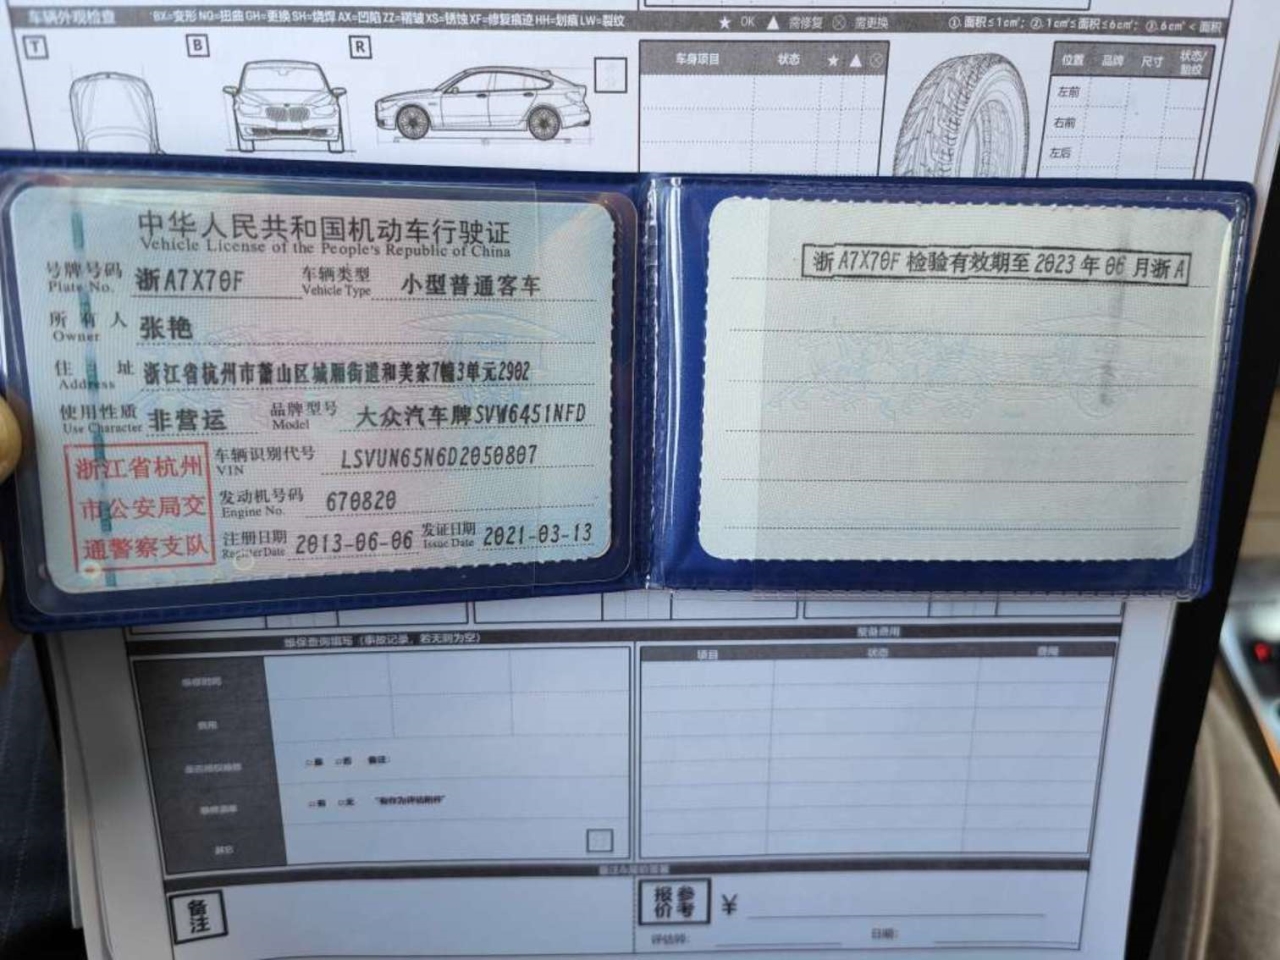 车辆外观检查 BX=变形 NQ=扭曲 GH=更换 SH=烧焊 AX=凹陷 ZZ=褶皱 XS=锈蚀 XF=修复痕迹 HH=划痕 LW=裂纹 ★ OK ▲ 需修复 ⊗ 需更换 ①.面积≤1c㎡; ②.1c㎡≤面积≤6c㎡; ③.6c㎡<面积
T B R
车身项目 状态 ★ ▲ ⊗
位置 品牌 尺寸 状态/胎纹
左前
右前
左后
中华人民共和国机动车行驶证
Vehicle License of the People's Republic of China
号牌号码 浙A7X70F 车辆类型 小型普通客车
Plate No. Vehicle Type
所有人 张艳
Owner
住址 浙江省杭州市萧山区城厢街道和美家7幢3单元2902
Address
使用性质 非营运 品牌型号 大众汽车牌SVW6451NFD
Use Character Model
车辆识别代号 LSVUN65N6D2050807
VIN
发动机号码 670820
Engine No.
注册日期 2013-06-06 发证日期 2021-03-13
Register Date Issue Date
浙江省杭州
市公安局交
通警察支队
浙A7X70F 检验有效期至2023年06月浙A
维保查询填写(事故记录,若无则为空)
整备费用
项目 状态 费用
维修时间
费用
□是 □否 备注:
□有 □无
备注
报价参考 ¥
评估师: 日期: